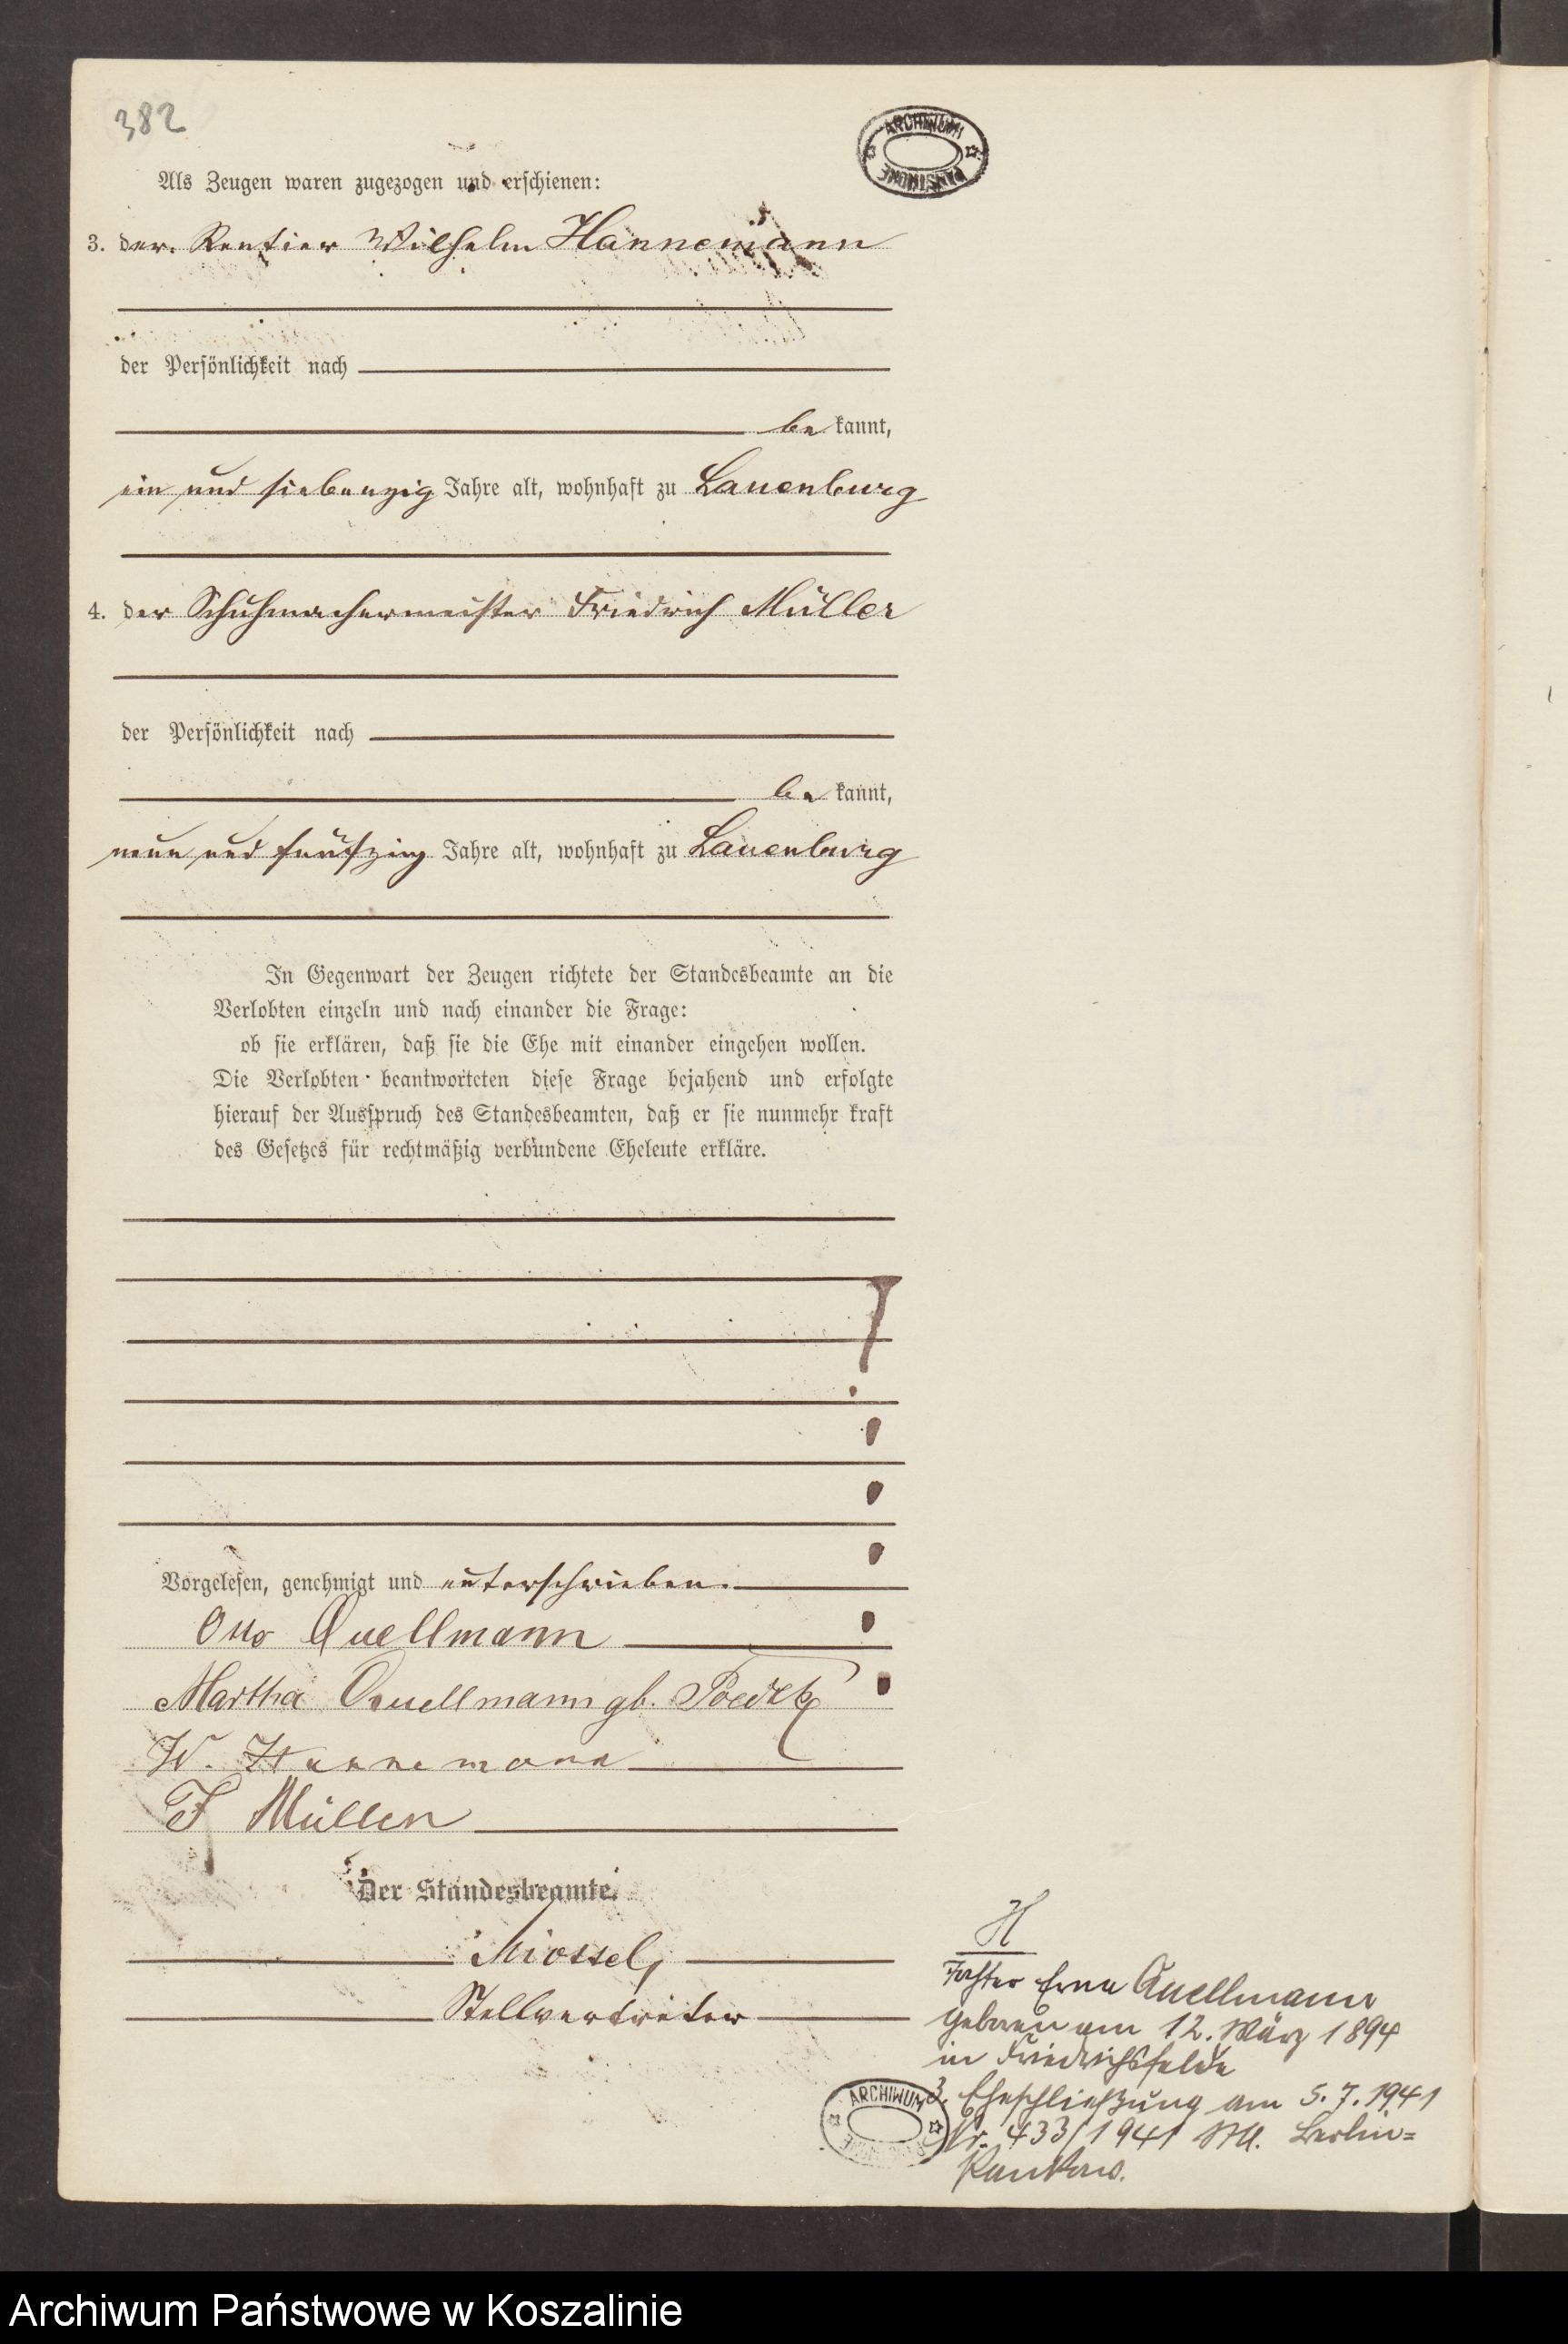 382
ARCHIWUM PAŃSTWOWE
Als Zeugen waren zugezogen und erschienen:
3. der Rentier Wilhelm Hannemann
der Persönlichkeit nach
be kannt,
ein und siebenzig Jahre alt, wohnhaft zu Lauenburg
4. der Schuhmachermeister Friedrich Müller
der Persönlichkeit nach
be kannt,
neun und fünfzig Jahre alt, wohnhaft zu Lauenburg
In Gegenwart der Zeugen richtete der Standesbeamte an die
Verlobten einzeln und nach einander die Frage:
ob sie erklären, daß sie die Ehe mit einander eingehen wollen.
Die Verlobten beantworteten diese Frage bejahend und erfolgte
hierauf der Ausspruch des Standesbeamten, daß er sie nunmehr kraft
des Gesetzes für rechtmäßig verbundene Eheleute erkläre.
Vorgelesen, genehmigt und unterschrieben.
Otto Quellmann
Martha Quellmann gb.
W. Hannemann
F Müller
Der Standesbeamte.
Miossel,
Stellvertreter
H
Tochter Erna Quellmann
geboren am 12. März 1894
in Friedrichsfelde
3. Eheschließung am 5.7.1941
Nr. 433/1941 StA. Berlin=
Pankow.
ARCHIWUM
Archiwum Państwowe w Koszalinie